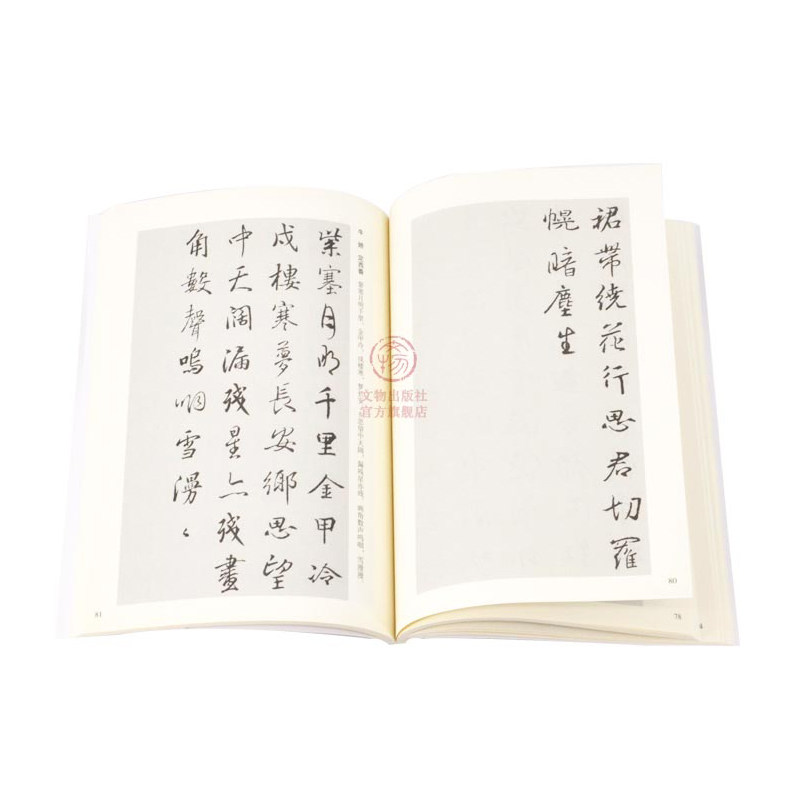 裙帶繞花行思君切羅
幌暗塵生
80
78
牛峤 定西番 紫塞月明千里,金甲冷,戍楼寒,梦 思望中天阔,漏残星亦残。画角数声呜咽,雪漫漫
紫塞月明千里金甲冷
戍樓寒夢長安鄉思望
中天闊漏殘星亦殘畫
角數聲嗚咽雪漫〻
81
文物出版社
官方旗舰店